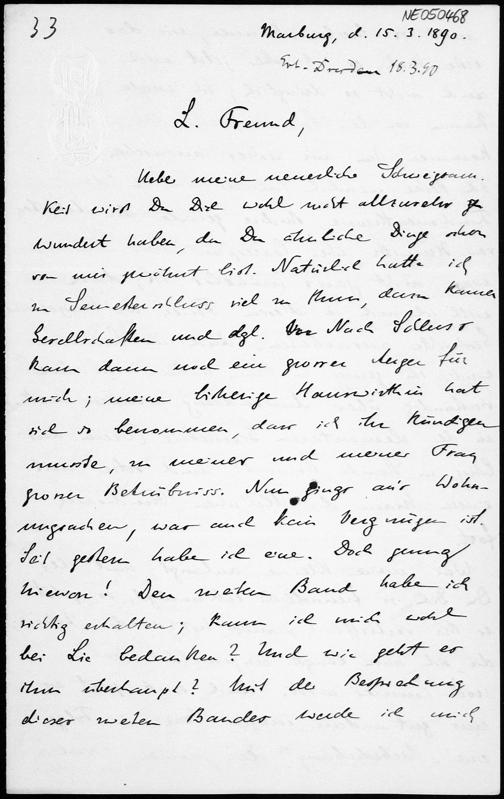 33
NE050468
Marburg, d. 15. 3. 1890.
Erh. Dresden 18.3.90
L. Freund,
Ueber meine neuerliche Schweigsam-
keit wirst Du Dich wohl nicht allzusehr ge
wundert haben, da Du ähnliche Dinge schon
von mir gewöhnt bist. Natürlich hatte ich
zu Semesterschluss viel zu thun, dazu kamen
Gesellschaften und dgl. Nach Schluss
kam dann noch ein grosser Aerger für
mich; meine bisherige Hauswirthin hat
sich so benommen, dass ich ihr kündigen
musste, zu meiner und meiner Frau
grosser Betrübniss. Nun gings an's Wohn-
ungsuchen, was auch kein Vergnügen ist.
Seit gestern habe ich eine. Doch genug
hievon! Den zweiten Band habe ich
richtig erhalten; kann ich mich wohl
bei Lie bedanken? Und wie geht es
ihm überhaupt? Mit der Besprechung
dieses zweiten Bandes werde ich mich